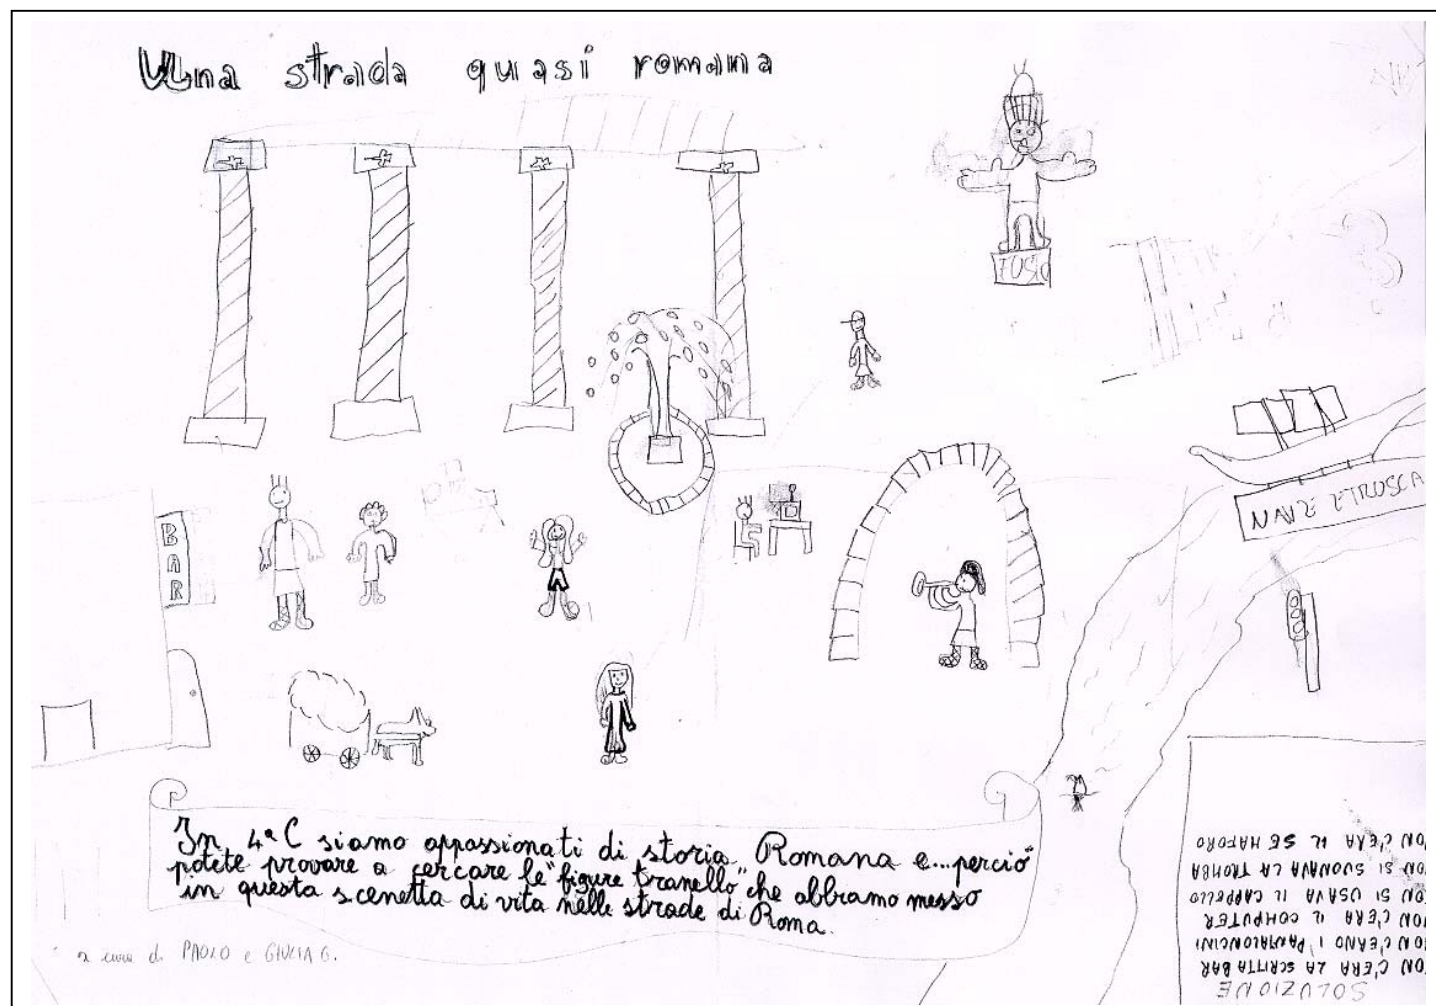 Una strada quasi romana
BAR
NAVE ETROSCA
In 4ª C siamo appassionati di storia Romana e...perciò
potete provare a cercare le "figure tranello" che abbiamo messo
in questa scenetta di vita nelle strade di Roma.
a cura di PAOLO e GIULIA G.
SOLUZIONE
ON C'ERA LA SCRITTA BAR
ON C'ERANO I PANTALONCINI
ON C'ERA IL COMPUTER
ON SI USAVA IL CAPPELLO
ON SI SUONAVA LA TROMBA
ON C'ERA IL SEMAFORO